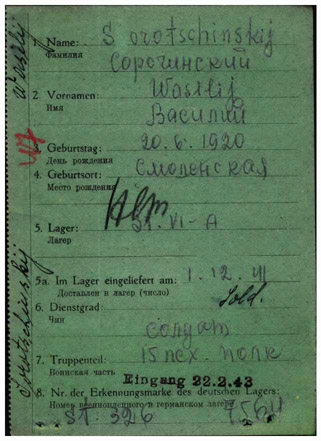 Wasslij
Sorotschinskij
1. Name: Sorotschinskij
Фамилия
Сорочинский
2. Vornamen: Wasslij
Имя
Василий
3. Geburtstag: 20.6.1920
День рождения
4. Geburtsort: Смоленская
Место рождения
5. Lager: St. VI-A
Лагер
5a. Im Lager eingeliefert am: 1.12.41
Доставлен в лагер (число)
6. Dienstgrad: Sold.
Чин
солдат
7. Truppenteil: 15 пех. полк
Воинская часть
Eingang 22.2.43
8. Nr. der Erkennungsmarke des deutschen Lagers:
Номер военнопленного в германском лагере
St. 326